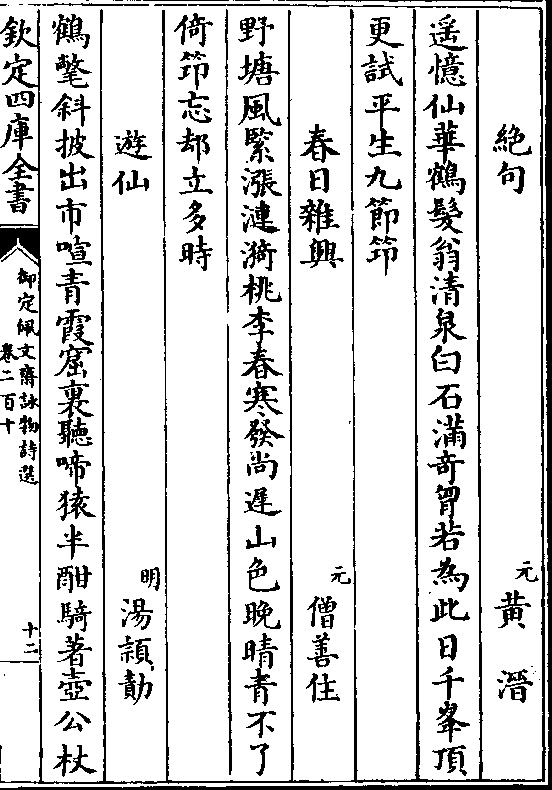 絶句　元黃溍
遥憶仙華鶴髪翁清泉白石滿奇胷若為此日千峯頂
更試平生九節笻
春日雜興　元僧善住
野塘風緊漲漣漪桃李春寒發尚遲山色晚晴青不了
倚笻忘却立多時
遊仙　明湯頴勣
鶴氅斜披出市喧青霞窟裏聽啼猿半酣騎著壺公杖
欽定四庫全書
御定佩文齋詠物詩選
卷二百十
十二